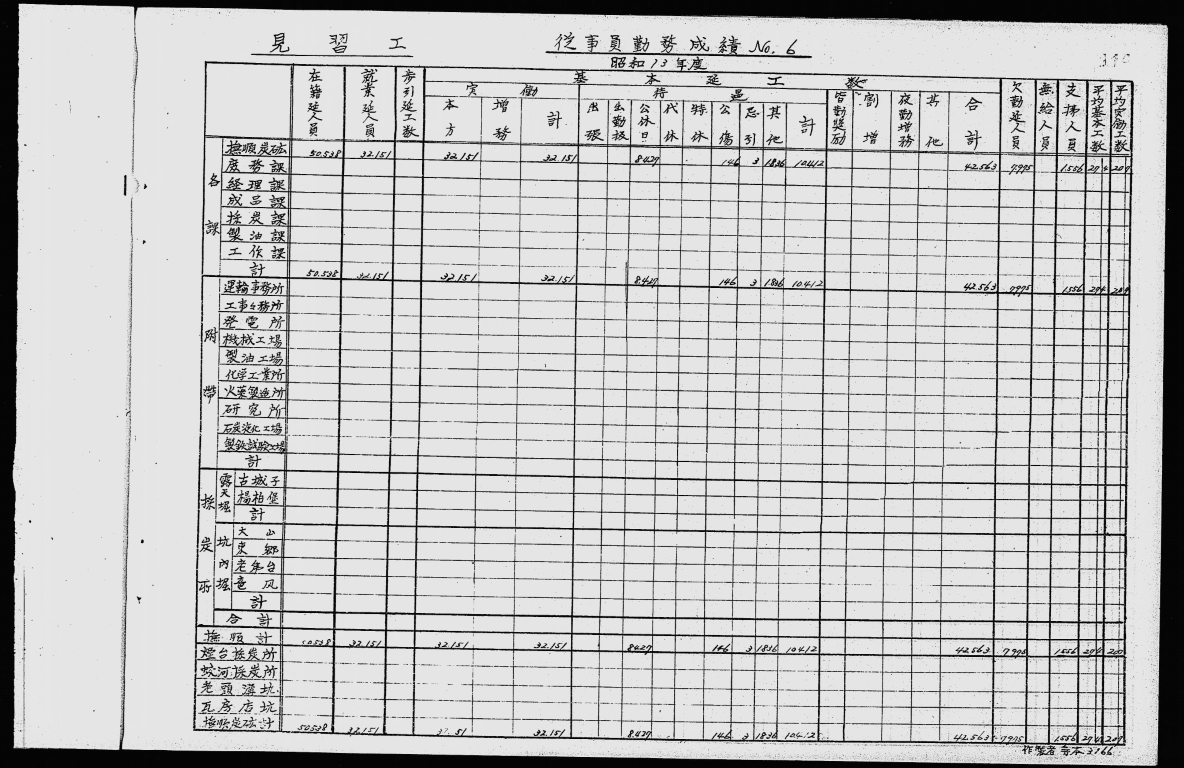 見習工 従事員勤務成績 No. 6
昭和13年度
在籍延人員 就業延人員 歩引延工数 基本延工数 欠勤延人員 無給人員 支拂人員 平均基本工数 平均実働工数
実働 待遇 皆勤奨励 割増 夜勤増務 其他 合計
本方 増務 計 出張 出勤扱 公休日 代休 特休 公傷 忌引 其他 計
各課
撫順炭砿 50.538 32.151 32.151 32.151 8.427 146 3 1836 10.412 42.563 7.995 1.556 27.4 20.7
庶務課
経理課
採炭課
製油課
工作課
計 50.538 32.151 32.151 32.151 8.427 146 3 1836 10.412 42.563 7.995 1.556 27.4
附帯
運輸事務所
工事々務所
発電所
機械工場
製油工場
化学工業所
火薬製造所
研究所
石炭液化工場
製鉄試験工場
計
採炭所
露天堀 古城子
楊柏堡
計
坑内堀 大山
東郷
老虎台
竜凤
計
合計
撫順計 50538 32.151 32.151 32.151 8.427 146 3 1836 10.412 42.563 7.995 1.556 27.4 20.7
煙台採炭所
蛟河採炭所
老頭溝坑
瓦房店坑
撫順炭砿計 50538 32.151 32.151 8.427 146 3 1836 10.412 42.563 7.995 1.556 27.4 20.7
作製者 寺本 3166